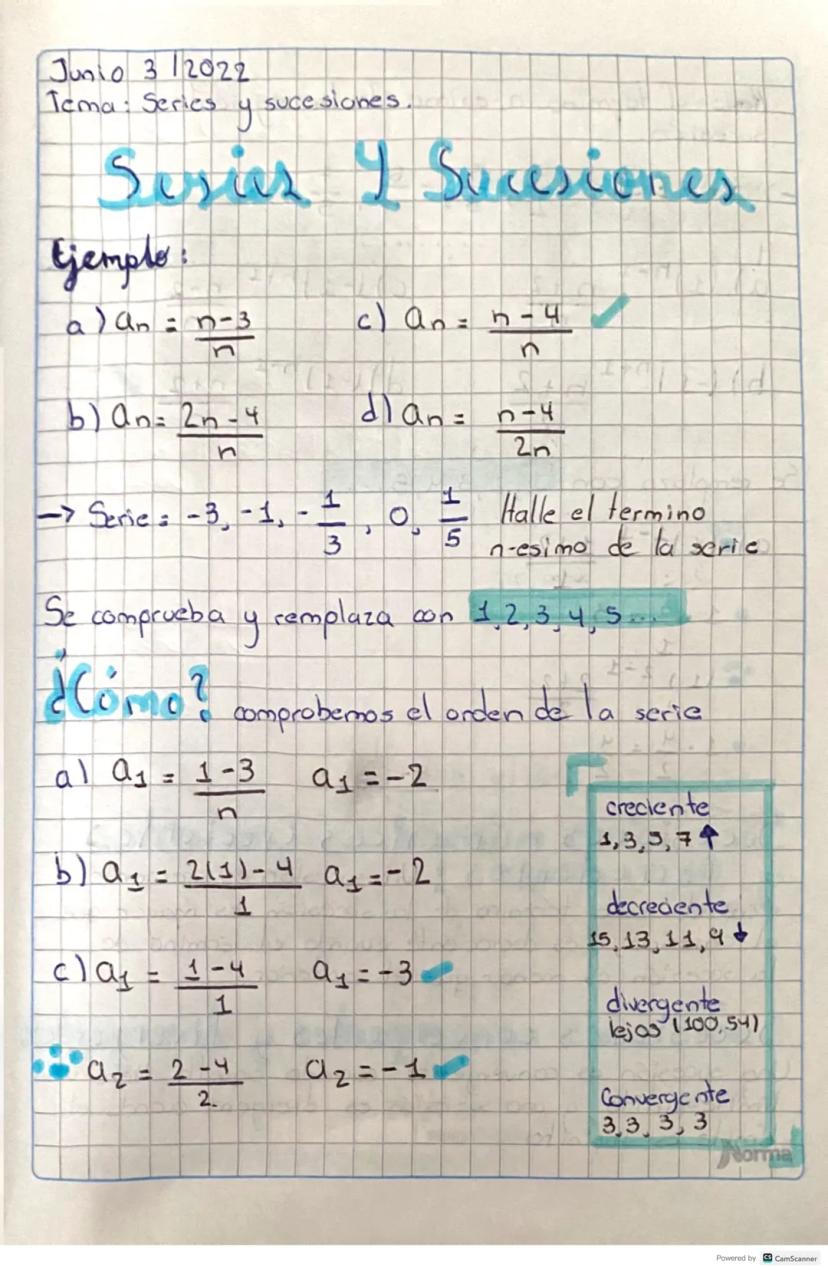 Junio 3 | 2022
Tema: Series y sucesiones.
Series Y Sucesiones
Ejemplo:
a) an = n-3/n c) an = n-4/n
b) an= 2n-4/n d) an = n-4/2n
→ Serie: -3, -1, -1/3, 0, 1/5 Halle el termino
n-esimo de la serie
Se comprueba y remplaza con 1,2,3,4,5...
¿Cómo? comprobemos el orden de la serie
a) a1 = 1-3/n a1 = -2
b) a1 = 2(1)-4/1 a1 = -2
c) a1 = 1-4/1 a1 = -3
a2 = 2-4/2. a2 = -1
creciente
1,3,5,7 ↑
decreciente
15,13,11,9 ↓
divergente
lejos (100,54)
Convergente
3,3,3,3
Norma
Powered by CS CamScanner